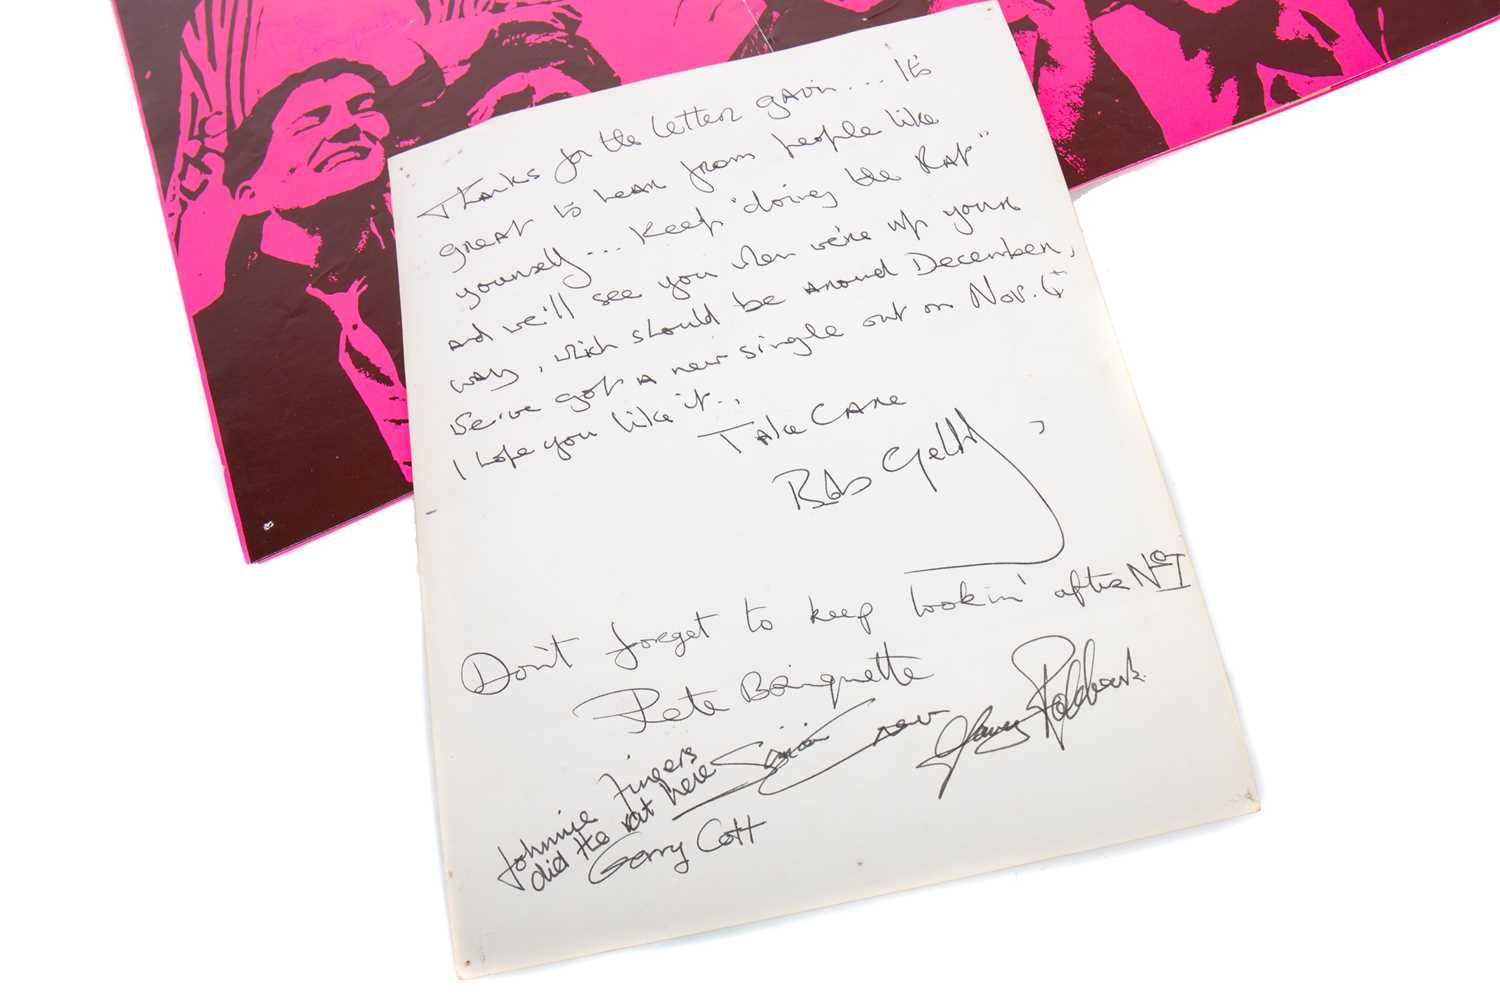 Thanks for the letter gavin... It's
great to hear from people like
yourself... Keep "doing the Rat"
and we'll see you when we're up your
way, which should be around December,
We've got a new single out on Nov. 4th
I hope you like it..
Take Care
Bob Geldof
Don't forget to keep lookin' after No 1
Pete Briquette
Johnnie Fingers
did the rat here
Simon Crowe
Garry Roberts
Gerry Cott